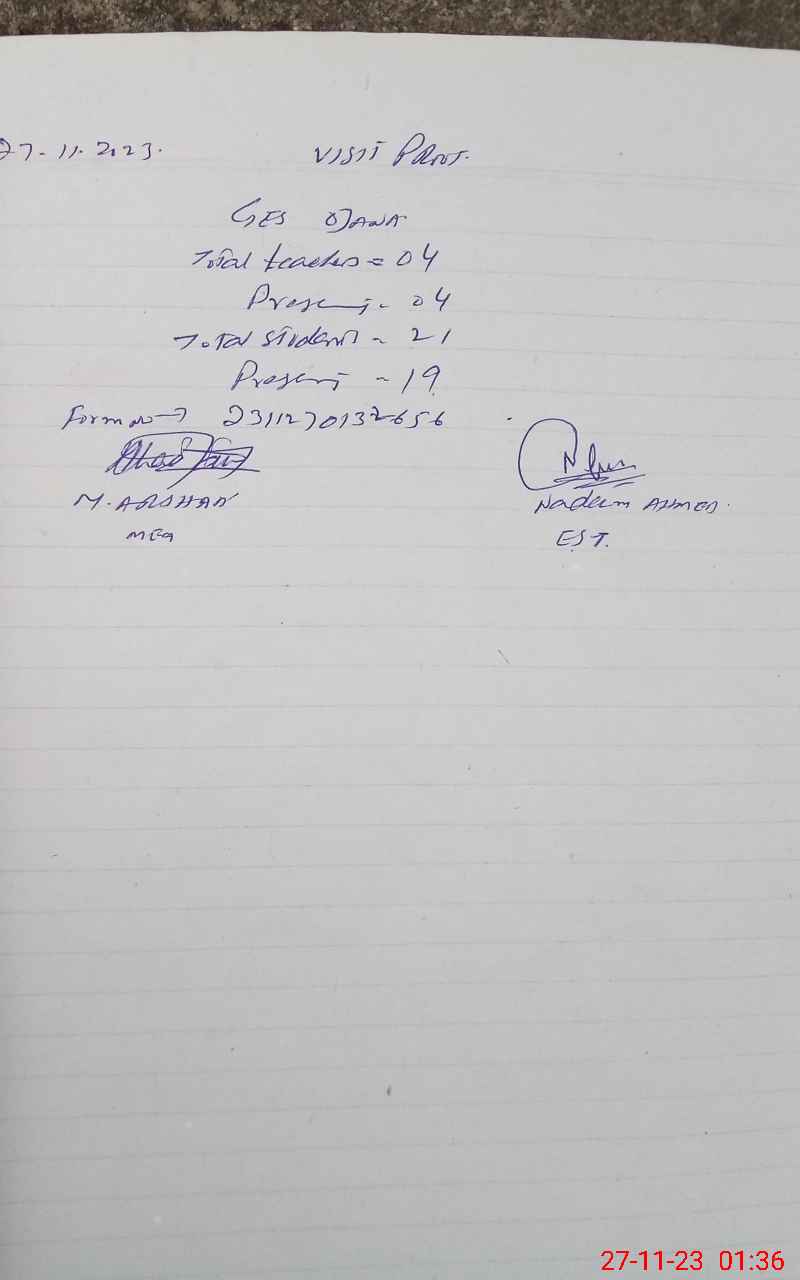 27-11-2023.
VISIT PROOF.
GES OJANA
Total teachers = 04
Present - 04
Total students - 21
Present - 19
Form no → 2311270132656
M. ARSHAD
MEA
Nadeem AHMED.
EST.
27-11-23 01:36